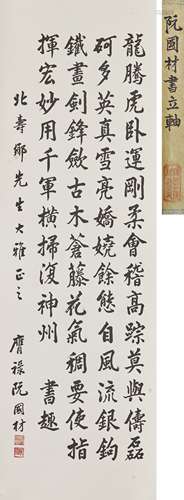 阮國材書立軸
龍騰虎臥運剛柔會稽高踪莫與儔磊
砢多英真雪亮嬌嬈餘態自風流銀鉤
鐵畫劍鋒斂古木蒼藤花氣稠要使指
揮宏妙用千軍橫掃復神州 書趣
北壽鄉先生大雅正之
膺祿阮國材